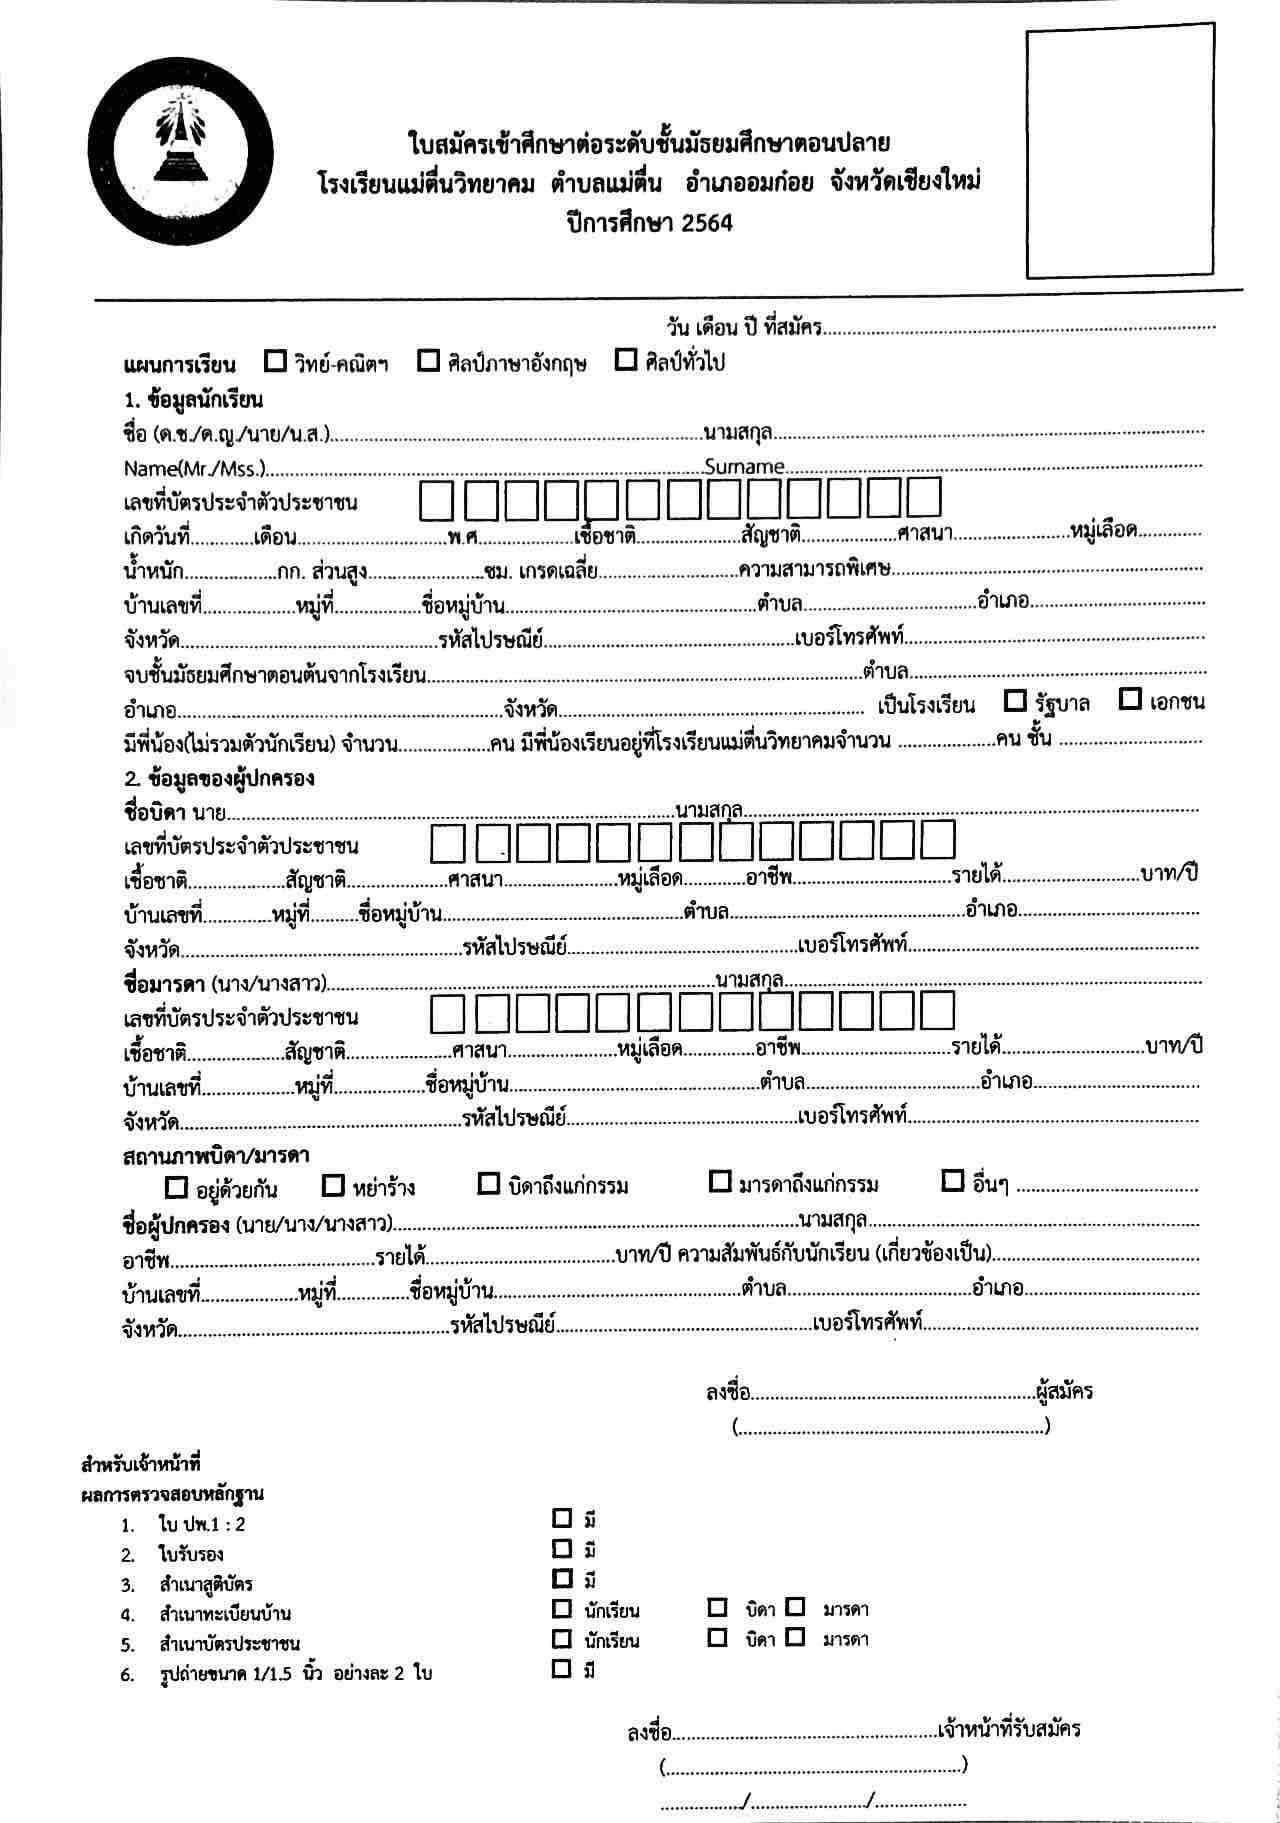 ใบสมัครเข้าศึกษาต่อระดับชั้นมัธยมศึกษาตอนปลาย
โรงเรียนแม่ตื่นวิทยาคม ตำบลแม่ตื่น อำเภออมก๋อย จังหวัดเชียงใหม่
ปีการศึกษา 2564
วัน เดือน ปี ที่สมัคร....................
แผนการเรียน ☐ วิทย์-คณิตฯ ☐ ศิลป์ภาษาอังกฤษ ☐ ศิลป์ทั่วไป
1. ข้อมูลนักเรียน
ชื่อ (ด.ช./ด.ญ./นาย/น.ส.)....................นามสกุล....................
Name(Mr./Mss.)....................Surname....................
เลขที่บัตรประจำตัวประชาชน
เกิดวันที่............เดือน....................พ.ศ....................เชื้อชาติ....................สัญชาติ....................ศาสนา....................หมู่เลือด............
น้ำหนัก....................กก. ส่วนสูง....................ซม. เกรดเฉลี่ย....................ความสามารถพิเศษ....................
บ้านเลขที่....................หมู่ที่....................ชื่อหมู่บ้าน....................ตำบล....................อำเภอ....................
จังหวัด....................รหัสไปรษณีย์....................เบอร์โทรศัพท์....................
จบชั้นมัธยมศึกษาตอนต้นจากโรงเรียน....................ตำบล....................
อำเภอ....................จังหวัด.................... เป็นโรงเรียน ☐ รัฐบาล ☐ เอกชน
มีพี่น้อง(ไม่รวมตัวนักเรียน) จำนวน....................คน มีพี่น้องเรียนอยู่ที่โรงเรียนแม่ตื่นวิทยาคมจำนวน ....................คน ชั้น ....................
2. ข้อมูลของผู้ปกครอง
ชื่อบิดา นาย....................นามสกุล....................
เลขที่บัตรประจำตัวประชาชน
เชื้อชาติ....................สัญชาติ....................ศาสนา....................หมู่เลือด............อาชีพ....................รายได้....................บาท/ปี
บ้านเลขที่............หมู่ที่..........ชื่อหมู่บ้าน....................ตำบล....................อำเภอ....................
จังหวัด....................รหัสไปรษณีย์....................เบอร์โทรศัพท์....................
ชื่อมารดา (นาง/นางสาว)....................นามสกุล....................
เลขที่บัตรประจำตัวประชาชน
เชื้อชาติ....................สัญชาติ....................ศาสนา....................หมู่เลือด............อาชีพ....................รายได้....................บาท/ปี
บ้านเลขที่....................หมู่ที่....................ชื่อหมู่บ้าน....................ตำบล....................อำเภอ....................
จังหวัด....................รหัสไปรษณีย์....................เบอร์โทรศัพท์....................
สถานภาพบิดา/มารดา
☐ อยู่ด้วยกัน ☐ หย่าร้าง ☐ บิดาถึงแก่กรรม ☐ มารดาถึงแก่กรรม ☐ อื่นๆ ....................
ชื่อผู้ปกครอง (นาย/นาง/นางสาว)....................นามสกุล....................
อาชีพ....................รายได้....................บาท/ปี ความสัมพันธ์กับนักเรียน (เกี่ยวข้องเป็น)....................
บ้านเลขที่....................หมู่ที่..............ชื่อหมู่บ้าน....................ตำบล....................อำเภอ....................
จังหวัด....................รหัสไปรษณีย์....................เบอร์โทรศัพท์....................
ลงชื่อ....................ผู้สมัคร
(....................)
สำหรับเจ้าหน้าที่
ผลการตรวจสอบหลักฐาน
1. ใบ ปพ.1 : 2 ☐ มี
2. ใบรับรอง ☐ มี
3. สำเนาสูติบัตร ☐ มี
4. สำเนาทะเบียนบ้าน ☐ นักเรียน ☐ บิดา ☐ มารดา
5. สำเนาบัตรประชาชน ☐ นักเรียน ☐ บิดา ☐ มารดา
6. รูปถ่ายขนาด 1/1.5 นิ้ว อย่างละ 2 ใบ ☐ มี
ลงชื่อ....................เจ้าหน้าที่รับสมัคร
(....................)
................/......................../....................